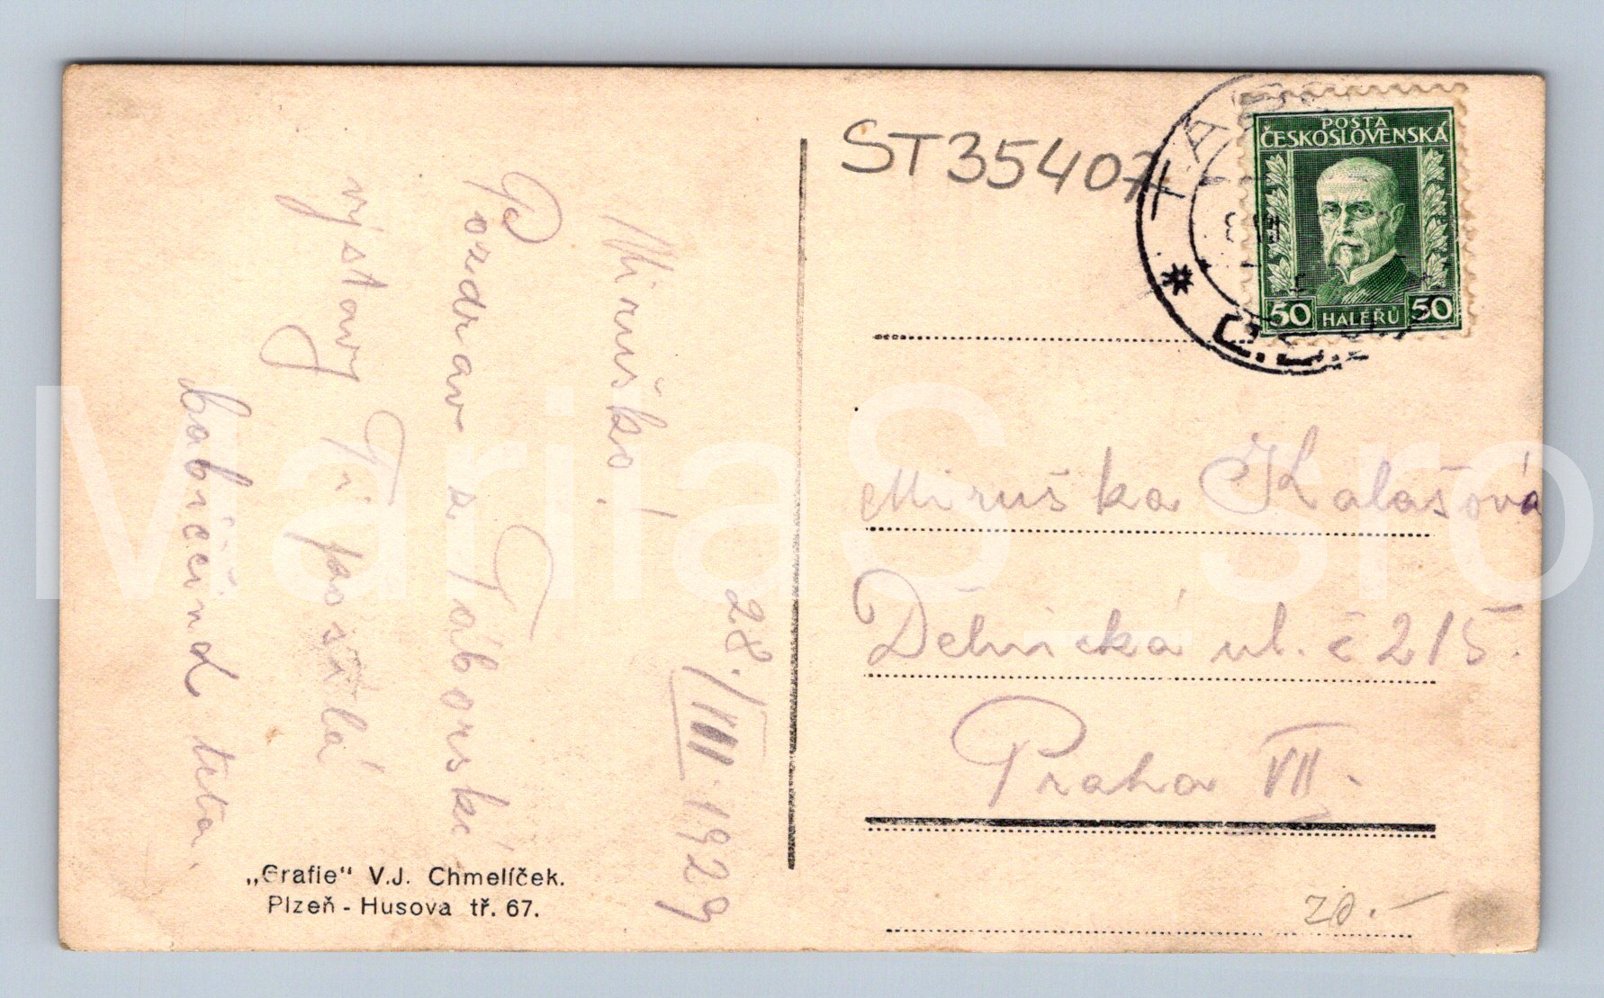 28./III. 1929
Miruško!
Pozdrav z Táborské
výstavy Ti posílá
babiččina teta.
„Grafie" V.J. Chmelíček.
Plzeň - Husova tř. 67.
ST35407
TÁBOR
POSTA
ČESKOSLOVENSKÁ
50 HALÉŘŮ 50
Miruška Kalašová
Dělnická ul. č 215.
Praha VII.
20.-
MarijaS sro